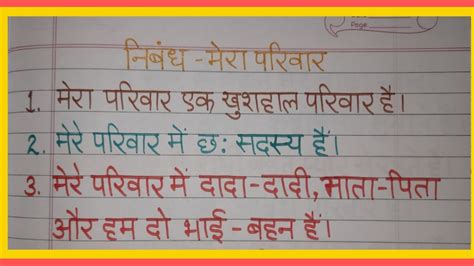 Page
निबंध - मेरा परिवार
1. मेरा परिवार एक खुशहाल परिवार है।
2. मेरे परिवार में छः सदस्य हैं।
3. मेरे परिवार में दादा-दादी, माता-पिता
और हम दो भाई - बहन हैं।